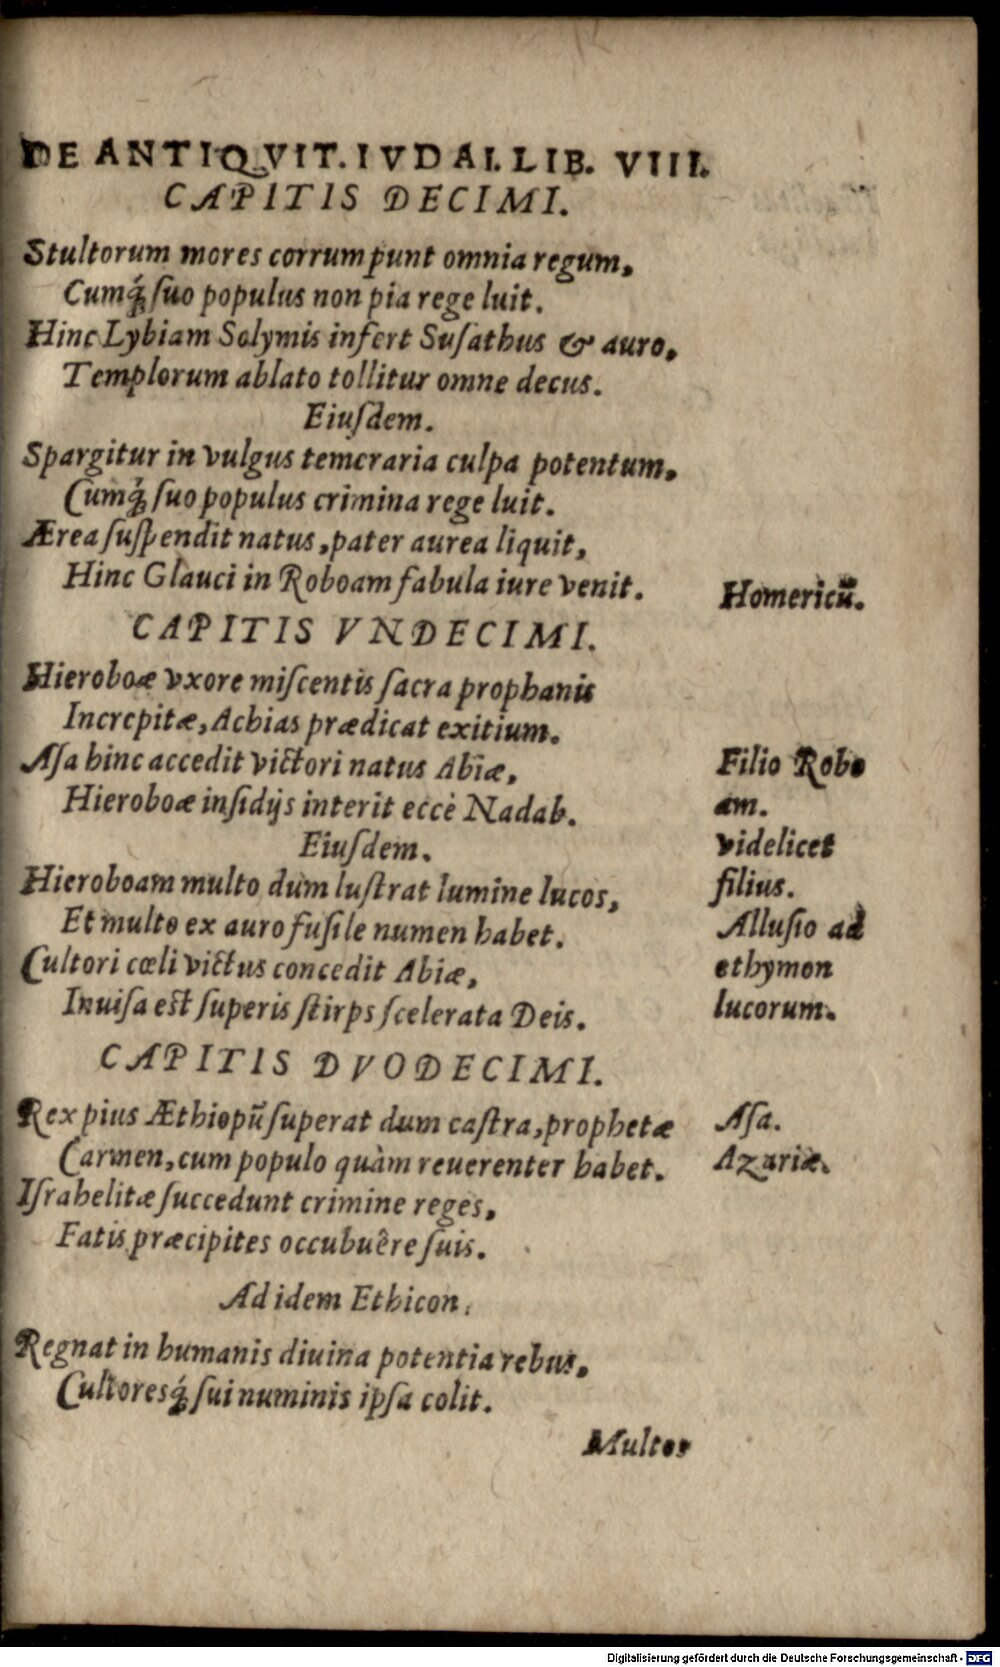 DE ANTIQVIT. IVDAI. LIB. VIII.
CAPITIS DECIMI.
Stultorum mores corrumpunt omnia regum,
Cumq́; ſuo populus non pia rege luit.
Hinc Lybiam Solymis infert Suſathus & auro,
Templorum ablato tollitur omne decus.
Eiuſdem.
Spargitur in vulgus temeraria culpa potentum,
Cumq́; ſuo populus crimina rege luit.
Ærea ſuſpendit natus, pater aurea liquit,
Hinc Glauci in Roboam fabula iure venit.
Homericũ.
CAPITIS VNDECIMI.
Hieroboæ vxore miſcentis ſacra prophanis
Increpitæ, Achias prædicat exitium.
Aſa hinc accedit victori natus Abiæ,
Hieroboæ inſidijs interit eccè Nadab.
Filio Robo
am.
videlicet
filius.
Eiuſdem.
Hieroboam multo dum luſtrat lumine lucos,
Et multo ex auro fuſile numen habet.
Cultori cœli victus concedit Abiæ,
Inuiſa eſt ſuperis ſtirps ſcelerata Deis.
Alluſio ad
ethymon
lucorum.
CAPITIS DVODECIMI.
Rex pius Æthiopũ ſuperat dum caſtra, prophetæ
Carmen, cum populo quàm reuerenter habet.
Iſrahelitæ ſuccedunt crimine reges,
Fatis præcipites occubuêre ſuis.
Aſa.
Azariæ.
Ad idem Ethicon.
Regnat in humanis diuina potentia rebus,
Cultoresq́; ſui numinis ipſa colit.
Multos
Digitalisierung gefördert durch die Deutsche Forschungsgemeinschaft - DFG